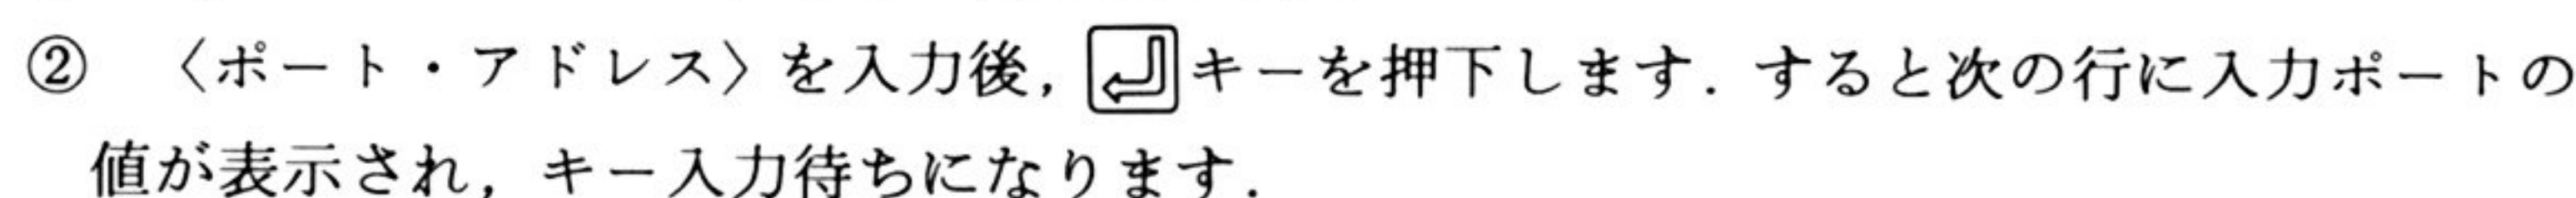 ② 〈ポート・アドレス〉を入力後，⏎キーを押下します．すると次の行に入力ポートの
値が表示され，キー入力待ちになります．